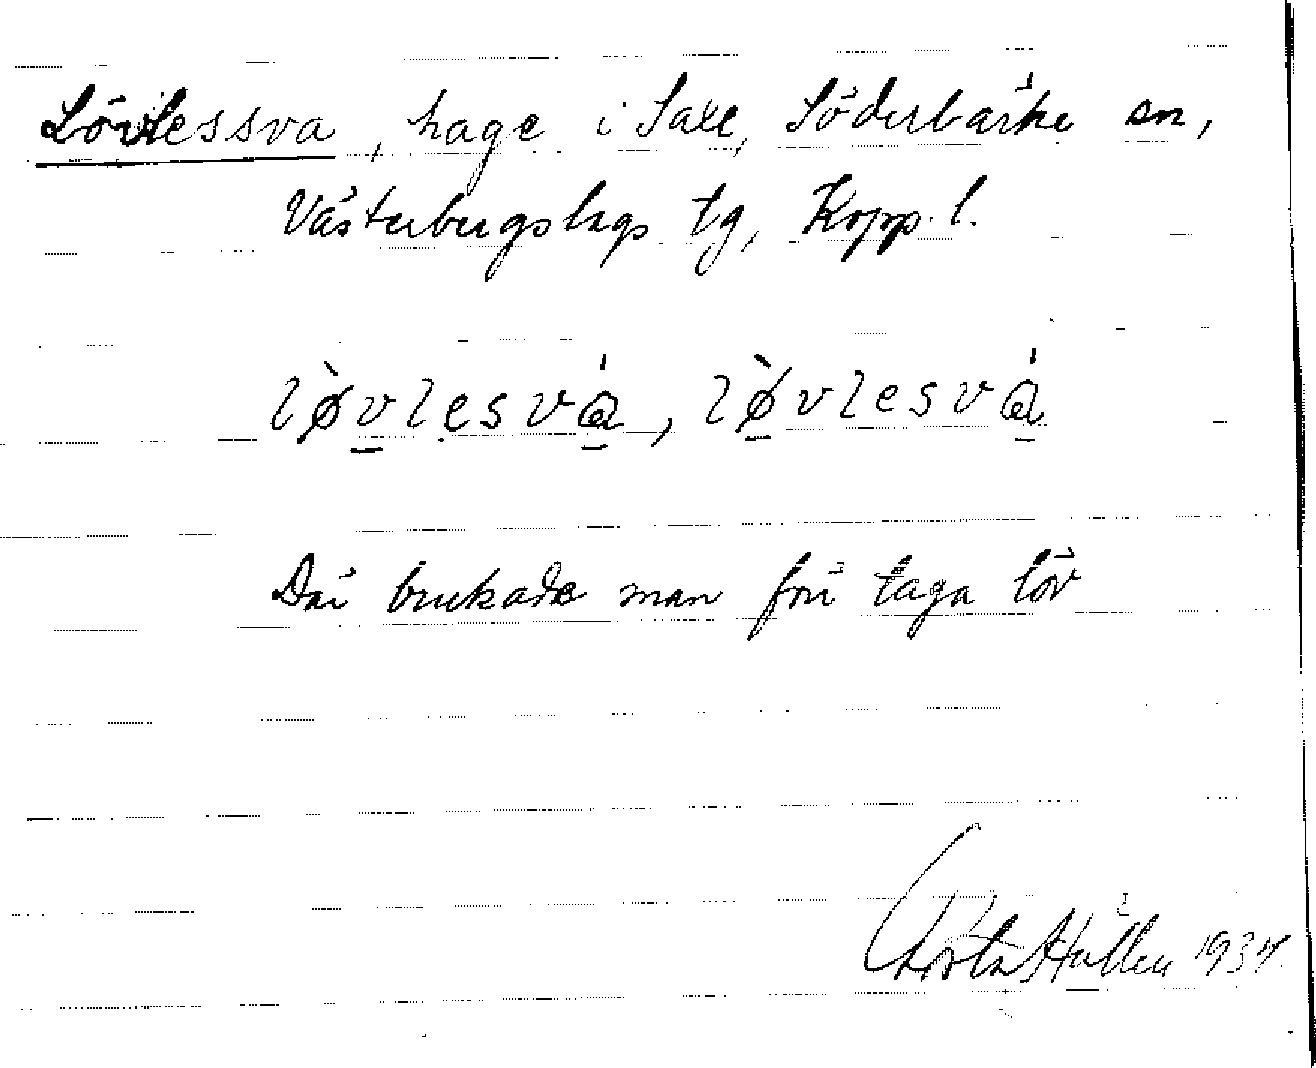 Lövlessva, hage i Saxe, Söderbärke sn,
Västerbergslags tg, Kopp. l.
løvlesvá, lø̀vlesvá
Där brukade man förr taga löv
1934